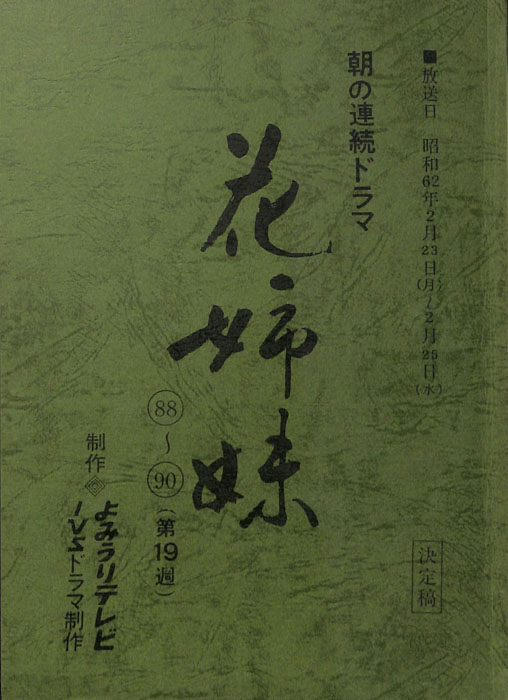 ■放送日 昭和62年2月23日(月)~2月25日(水)
朝の連続ドラマ
花姉妹
88~90(第19週)
制作 よみうりテレビ
IVSドラマ制作
決定稿